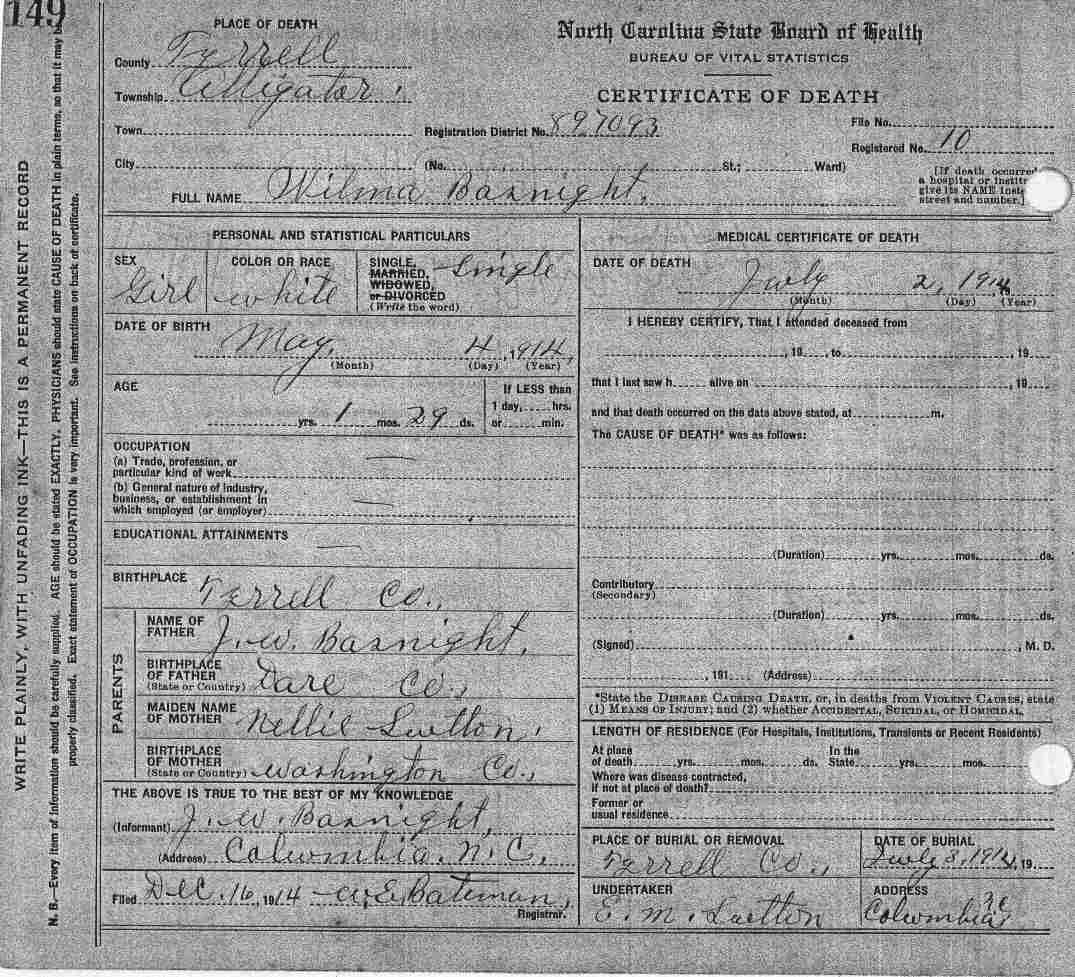 149
WRITE PLAINLY, WITH UNFADING INK—THIS IS A PERMANENT RECORD
N. B.—Every item of information should be carefully supplied. AGE should be stated EXACTLY. PHYSICIANS should state CAUSE OF DEATH in plain terms, so that it may be
properly classified. Exact statement of OCCUPATION is very important. See instructions on back of certificate.
PLACE OF DEATH
County Tyrrell
Township Alligator.
Town
City
North Carolina State Board of Health
BUREAU OF VITAL STATISTICS
CERTIFICATE OF DEATH
Registration District No. 897093
File No.
Registered No. 10
(No. St.; Ward)
[If death occurred
a hospital or institu
give its NAME inste
street and number.]
FULL NAME Wilma Basnight.
PERSONAL AND STATISTICAL PARTICULARS
SEX
Girl
COLOR OR RACE
white
SINGLE,
MARRIED,
WIDOWED,
or DIVORCED
(Write the word)
Single
DATE OF BIRTH
May, 4, 1914,
(Month) (Day) (Year)
AGE
yrs. 1 mos. 29 ds.
If LESS than
1 day, hrs.
or min.
OCCUPATION
(a) Trade, profession, or
particular kind of work
(b) General nature of industry,
business, or establishment in
which employed (or employer)
EDUCATIONAL ATTAINMENTS
BIRTHPLACE
Tyrrell Co.,
PARENTS
NAME OF
FATHER
J. W. Basnight.
BIRTHPLACE
OF FATHER
(State or Country) Dare Co.,
MAIDEN NAME
OF MOTHER
Nellie Sutton.
BIRTHPLACE
OF MOTHER
(State or Country) Washington Co.,
THE ABOVE IS TRUE TO THE BEST OF MY KNOWLEDGE
(Informant) J. W. Basnight,
(Address) Columbia. N. C.
Filed Dec. 16, 1914 W. E. Bateman,
Registrar.
MEDICAL CERTIFICATE OF DEATH
DATE OF DEATH
July 2, 1914
(Month) (Day) (Year)
I HEREBY CERTIFY, That I attended deceased from
, 19 , to , 19
that I last saw h alive on , 19
and that death occurred on the date above stated, at m.
The CAUSE OF DEATH* was as follows:
(Duration) yrs. mos. ds.
Contributory
(Secondary)
(Duration) yrs. mos. ds.
(Signed) , M. D.
, 191 (Address)
*State the DISEASE CAUSING DEATH, or, in deaths from VIOLENT CAUSES, state
(1) MEANS OF INJURY; and (2) whether ACCIDENTAL, SUICIDAL, or HOMICIDAL.
LENGTH OF RESIDENCE (For Hospitals, Institutions, Transients or Recent Residents)
At place
of death yrs. mos. ds.
In the
State yrs. mos.
Where was disease contracted,
if not at place of death?
Former or
usual residence
PLACE OF BURIAL OR REMOVAL
Tyrrell Co.,
DATE OF BURIAL
July 3, 1914, 19
UNDERTAKER
E. M. Sutton
ADDRESS
Columbia NC